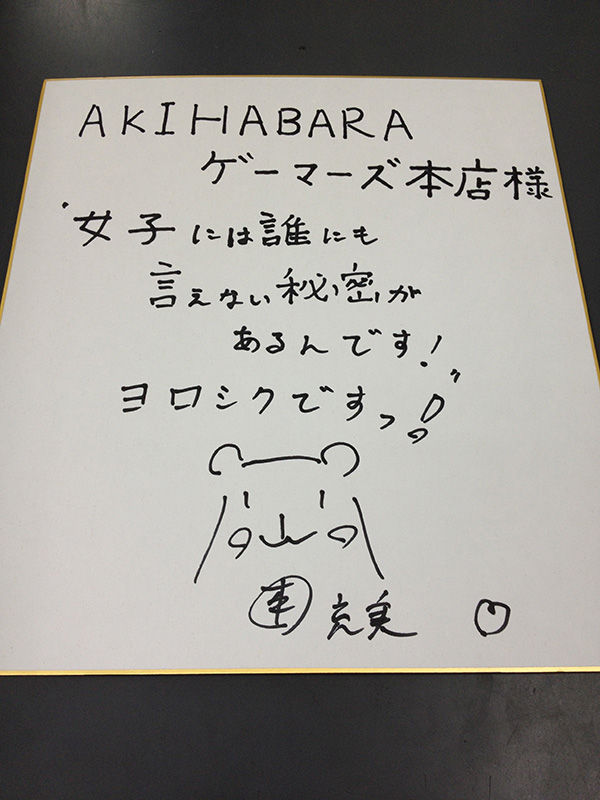 AKIHABARA
ゲーマーズ本店様
"女子には誰にも
言えない秘密が
あるんです!"
ヨロシクですっ!